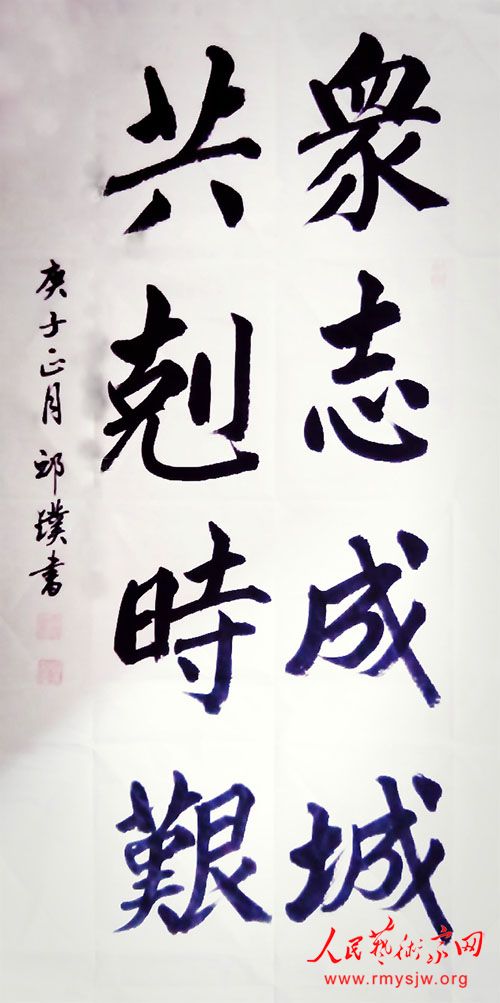 衆志成城
共剋時艱
庚子正月 邱璞書
人民藝術家网
www.rmysjw.org